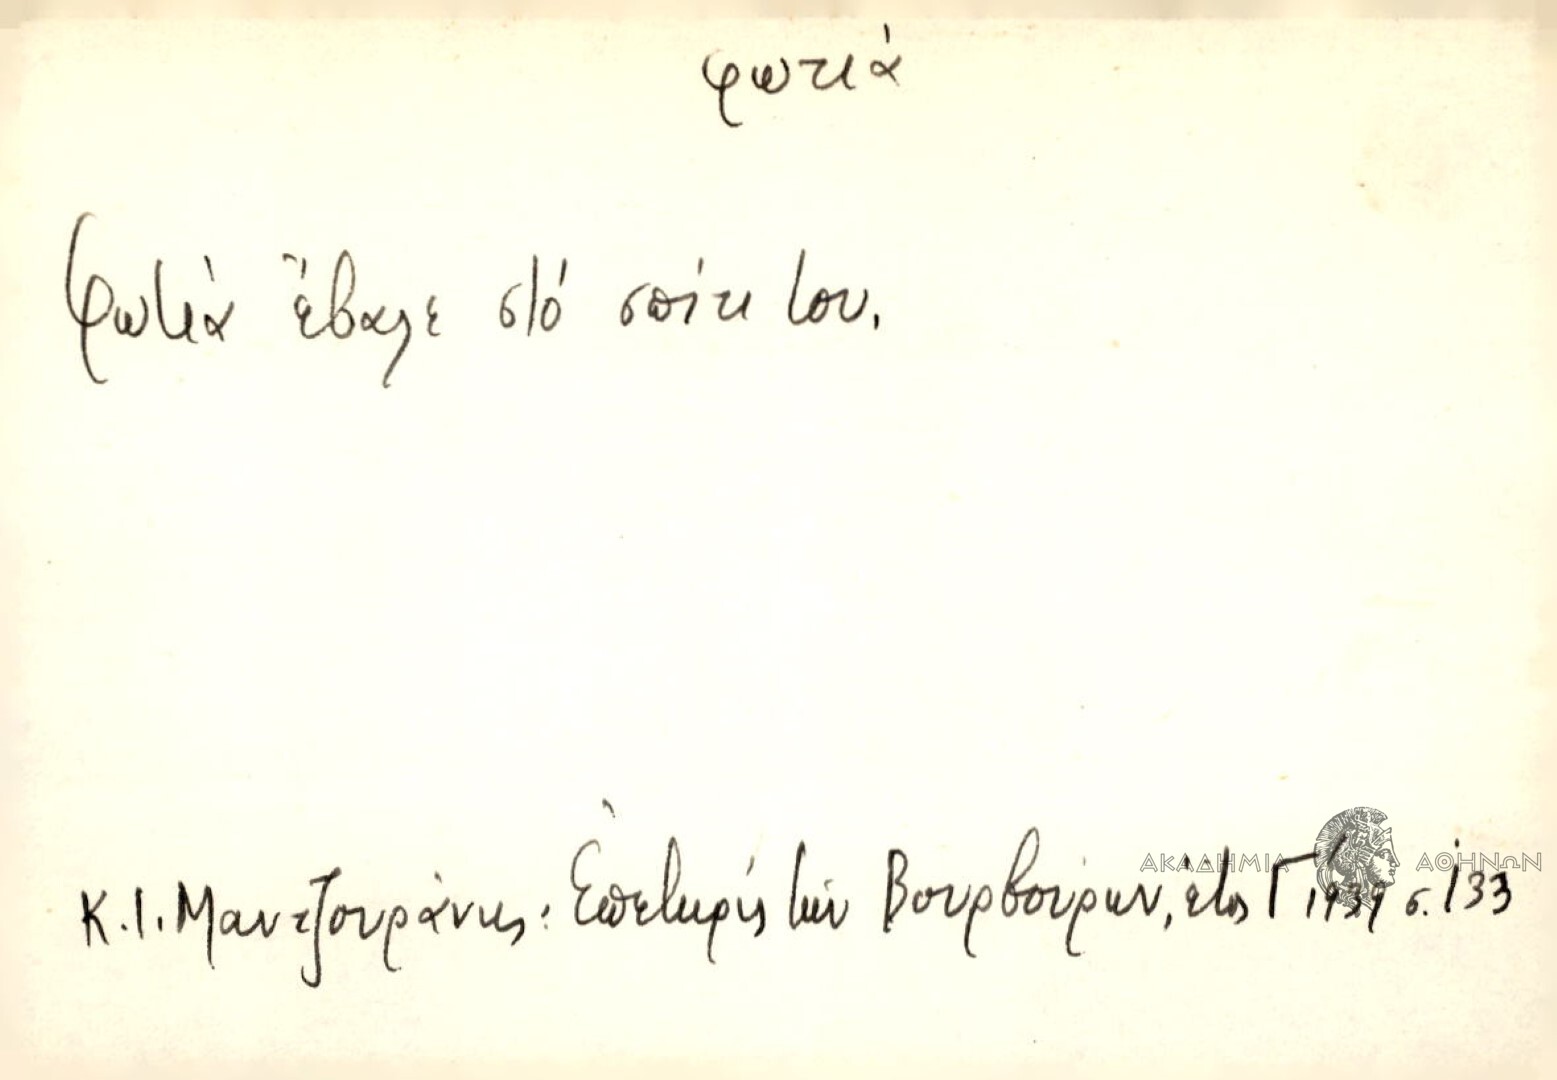 φωτιά
Φωτιά ἔβαλε στό σπίτι του.
Κ. Ι. Μαντζουράνης: Ἐπετηρίς τῶν Βουρβούρων, ἔτος Γ' 1939 σ. 133
ΑΚΑΔΗΜΙΑ ΑΘΗΝΩΝ